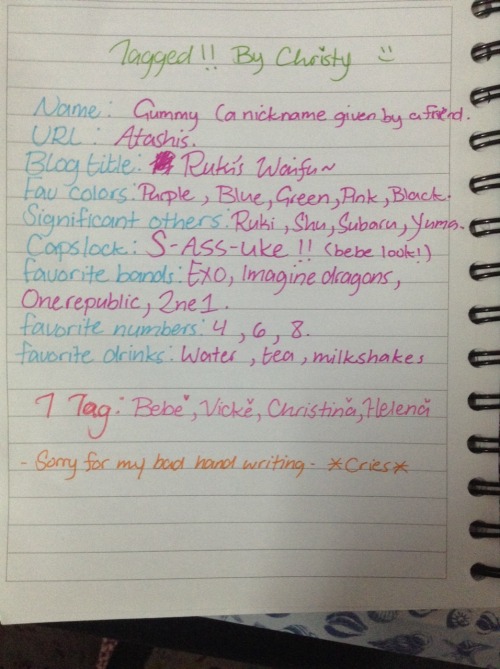 Tagged!! By Christy :)
Name: Gummy (a nickname given by a friend.
URL: Atashis.
Blog title: Ruki's Waifu~
Fav colors: Purple, Blue, Green, Pink, Black.
Significant others: Ruki, Shu, Subaru, Yuma.
Capslock: S-ASS-uke!! (bebe look!)
favorite bands: Exo, Imagine dragons,
Onerepublic, 2ne1.
favorite numbers: 4, 6, 8.
favorite drinks: Water, tea, milkshakes
I Tag: Bebe, Vicke, Christina, Helena
- Sorry for my bad hand writing - *Cries*